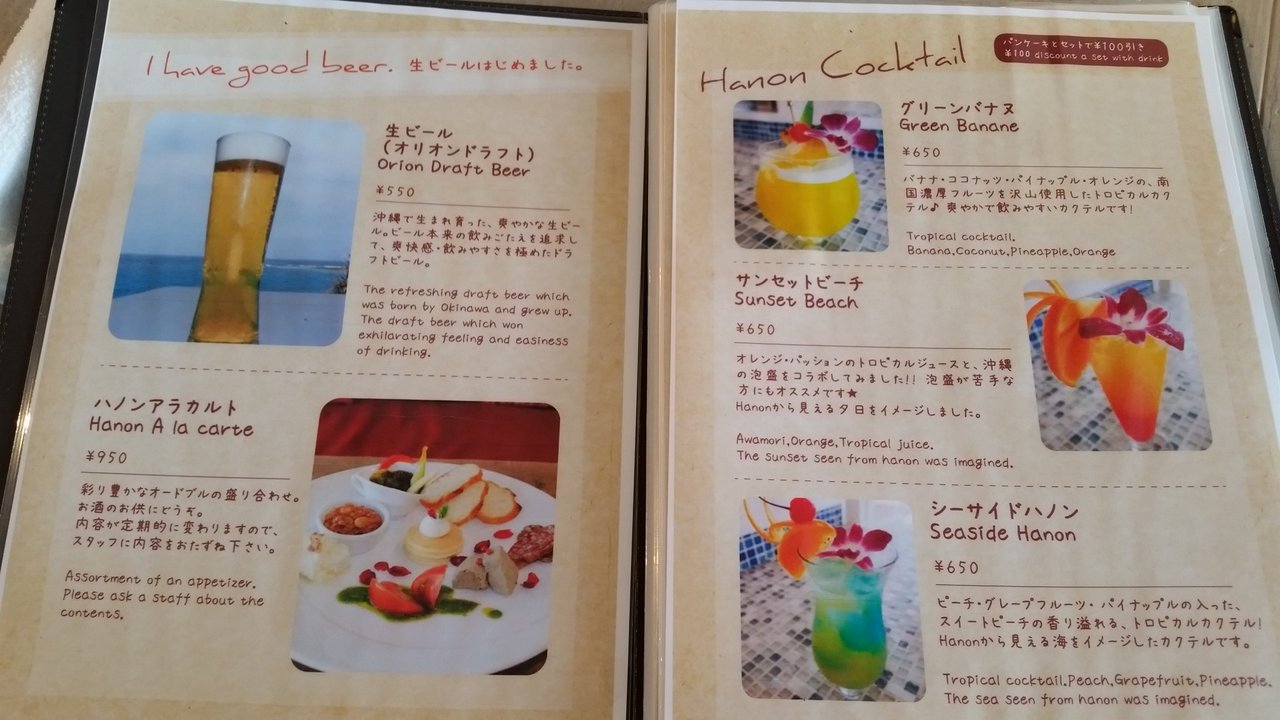 I have good beer. 生ビールはじめました。
生ビール
(オリオンドラフト)
Orion Draft Beer
¥550
沖縄で生まれ育った、爽やかな生ビー
ル。ビール本来の飲みごたえを追求し
て、爽快感・飲みやすさを極めたドラ
フトビール。
The refreshing draft beer which
was born by Okinawa and grew up.
The draft beer which won
exhilarating feeling and easiness
of drinking.
ハノンアラカルト
Hanon A la carte
¥950
彩り豊かなオードブルの盛り合わせ。
お酒のお供にどうぞ。
内容が定期的に変わりますので、
スタッフに内容をおたずね下さい。
Assortment of an appetizer.
Please ask a staff about the
contents.
Hanon Cocktail
パンケーキとセットで¥100引き
¥100 discount a set with drink
グリーンバナヌ
Green Banane
¥650
バナナ・ココナッツ・パイナップル・オレンジの、南
国濃厚フルーツを沢山使用したトロピカルカク
テル♪ 爽やかで飲みやすいカクテルです!
Tropical cocktail.
Banana,Coconut,Pineapple,Orange
サンセットビーチ
Sunset Beach
¥650
オレンジ・パッションのトロピカルジュースと、沖縄
の泡盛をコラボしてみました!! 泡盛が苦手な
方にもオススメです★
Hanonから見える夕日をイメージしました。
Awamori,Orange,Tropical juice.
The sunset seen from hanon was imagined.
シーサイドハノン
Seaside Hanon
¥650
ピーチ・グレープフルーツ・パイナップルの入った、
スイートピーチの香り溢れる、トロピカルカクテル!
Hanonから見える海をイメージしたカクテルです。
Tropical cocktail.Peach,Grapefruit,Pineapple.
The sea seen from hanon was imagined.